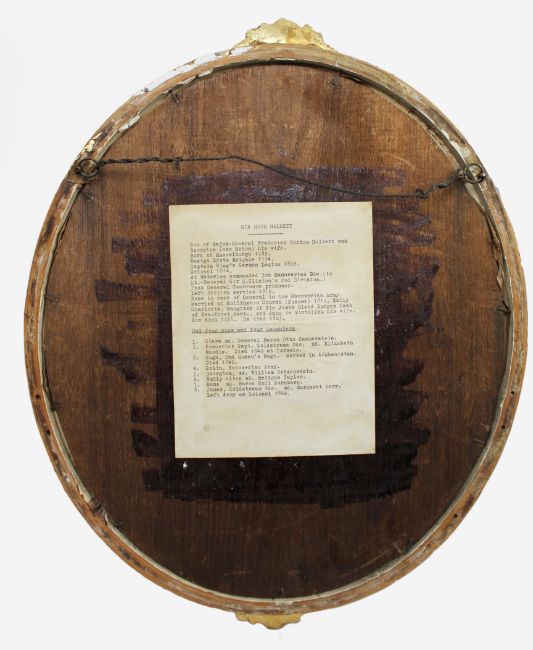 SIR HUGH HALKETT
Son of Major-General Frederick Gordon Halkett and
Georgina (nee Seton) his wife.
Born at Musselburgh 1783.
Ensign Scots Brigade 1794.
Captain King's German Legion 1803.
Colonel 1814.
At Waterloo commanded 3rd Hanoverian Bde. (in
Lt.-General Sir H.Clinton's 2nd Division.)
Took General Cambronne prisoner.
Left British service
Rose to rank of General in the Hanoverian Army.
Married at Hollington Church (Sussex) Emily
Charlotte, daughter of Sir James Bland Burges
of Beauport, Bart., and Anne de Montolieu his wife.
She died He died 1863.
Had four sons and four daughters.
1. Clara md. General Baron Otto Hammerstein.
2. Frederick Capt. Coldstream Gds. Md. Elizabeth
Moodie. Died 1840 at Toronto.
3. Hugh, 2nd Queen's Regt. Served in Afghanistan.
Died
4. Colin, Hanoverian Army.
5. Georgina, md. William
6. Emily Eliza md. Bridges Taylor.
7. Anna md. Baron Emil Dornberg.
8. James, Coldstream Gds. md. Margaret Kerr.
Left Army as Colonel